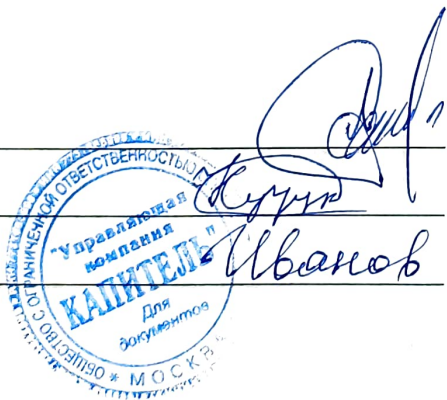 ОБЩЕСТВО С ОГРАНИЧЕННОЙ ОТВЕТСТВЕННОСТЬЮ
"Управляющая
компания
КАПИТЕЛЬ"
Для
документов
* МОСКВА
Иванов